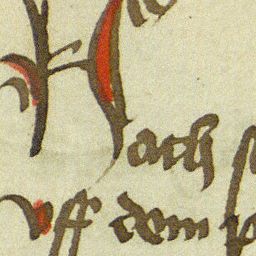 Nach
vff dem